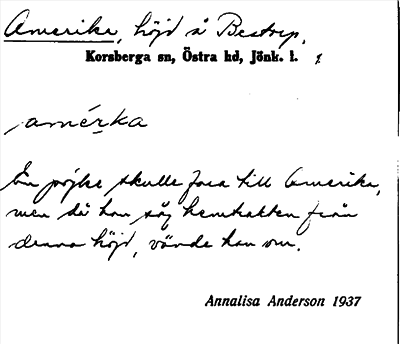 Amerika, höjd å Bestorp,
Korsberga sn, Östra hd, Jönk. l.
amérka
En pojke skulle fara till Amerika,
men då han såg hemtrakten från
denna höjd, vände han om.
Annalisa Anderson 1937